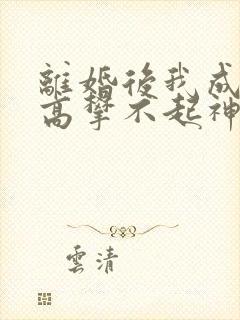 離婚後我成
高攀不起神
雲清